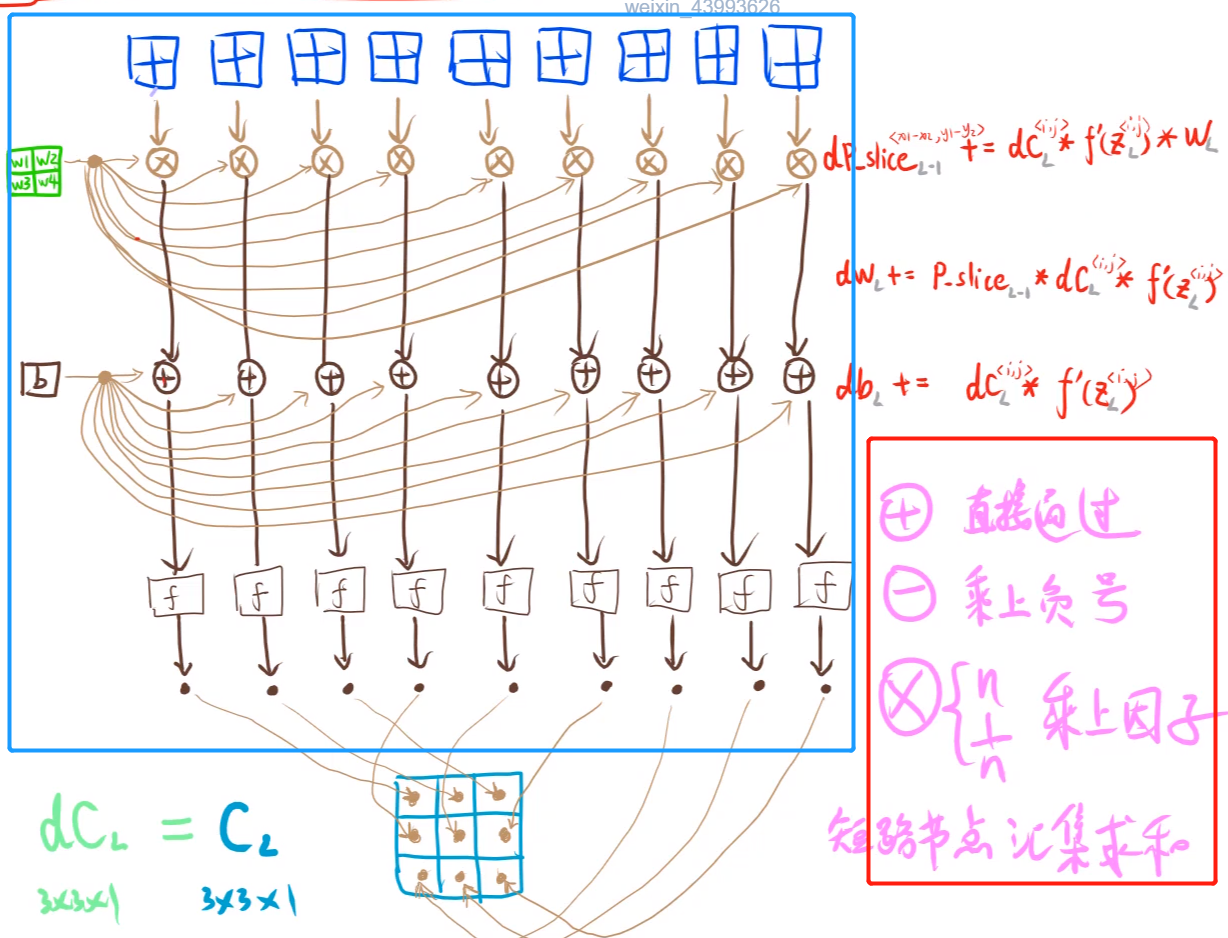 weixin_43993626
w1 w2
w3 w4
dP_slice_{L-1}^{<x1-x2, y1-y2>} += dC_L^{<i,j>} * f'(z_L^{<i,j>}) * W_L
dW_L += P_slice_{L-1} * dC_L^{<i,j>} * f'(z_L^{<i,j>})
b
db_L += dC_L^{<i,j>} * f'(z_L^{<i,j>})
⊕ 直接通过
⊖ 乘上负号
f f f f f f f f f
⊗ { n 1/n 乘上因子
短路节点汇集求和。
dC_L = C_L
3×3×1 3×3×1